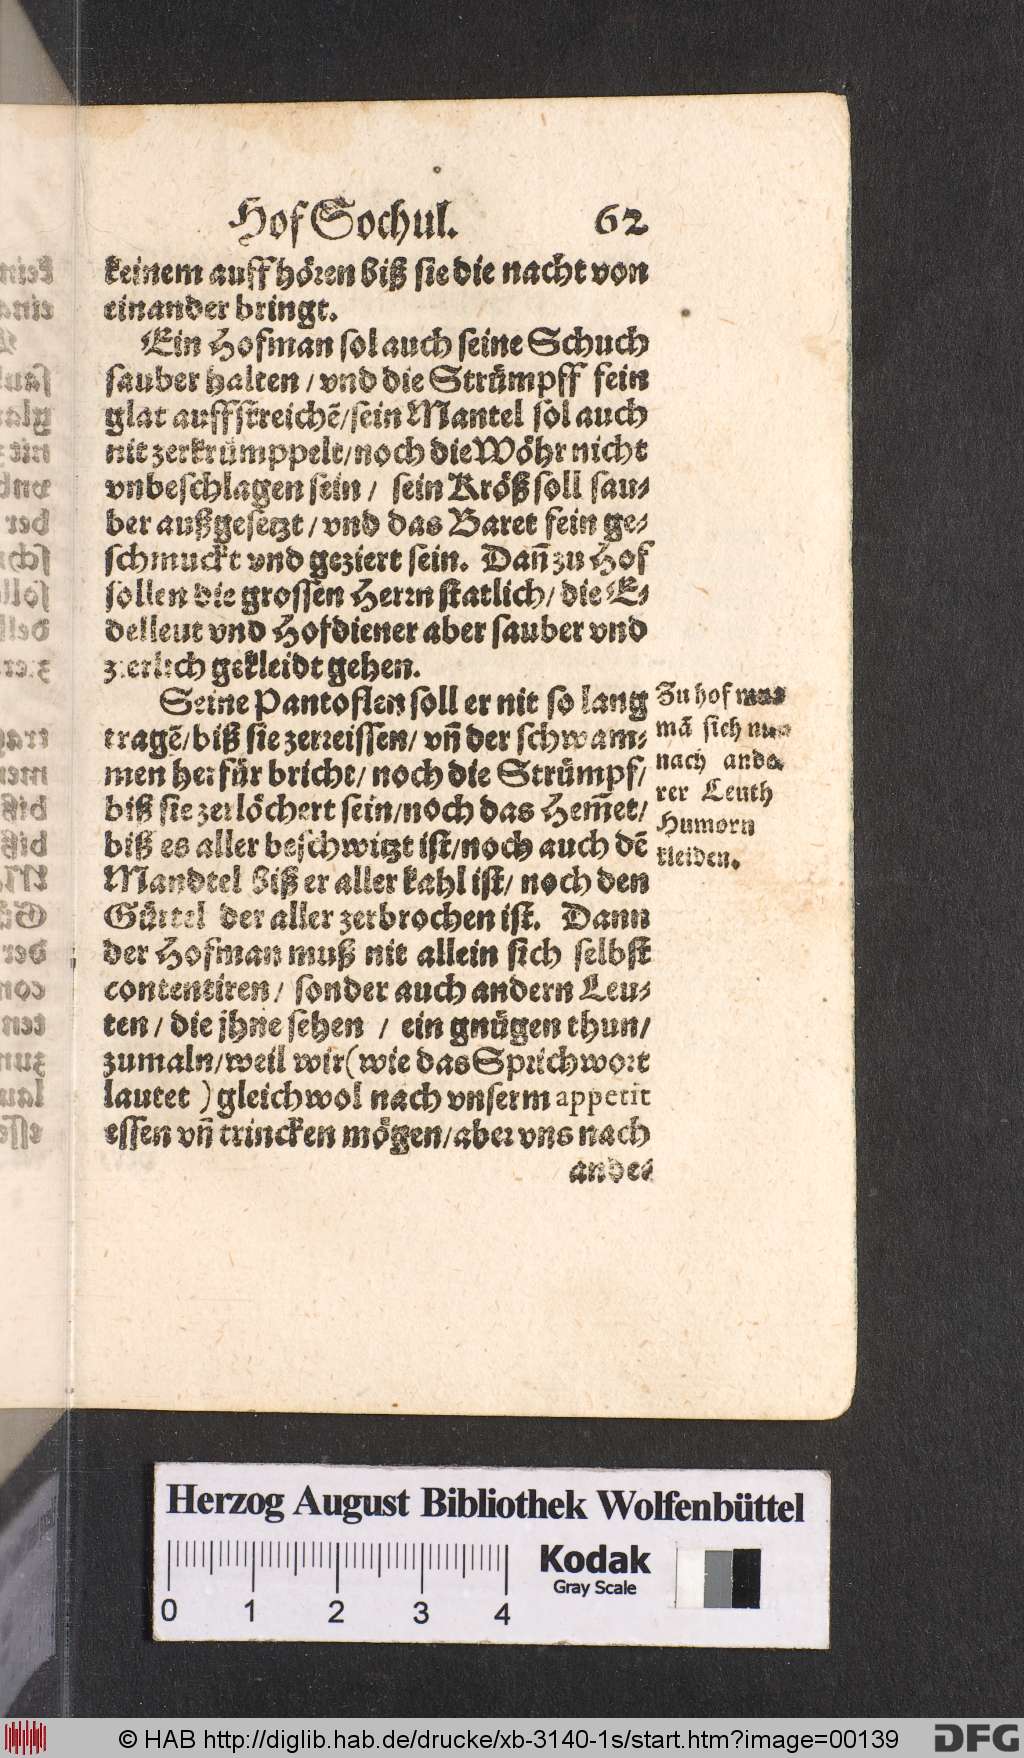 Hof Sochul. 62
keinem auffhören biß sie die nacht von
einander bringt.
Ein Hofman sol auch seine Schuch
sauber halten / vnd die Strümpff fein
glat auffstreichẽ/sein Mantel sol auch
nit zerkrümppelt/noch die Wöhr nicht
vnbeschlagen sein / sein Kröß soll sau-
ber außgesetzt / vnd das Baret fein ge-
schmuckt vnd geziert sein. Dañ zu Hof
sollen die grossen Herrn statlich/ die E-
delleut vnd Hofdiener aber sauber vnd
zierlich gekleidt gehen.
Seine Pantoflen soll er nit so lang
tragẽ/biß sie zerreissen/ vñ der schwam-
men herfür bricht/ noch die Strümpf/
biß sie zerlöchert sein/noch das Hem̃et/
biß es aller beschwitzt ist/noch auch dẽ
Mandtel biß er aller kahl ist/ noch den
Gürtel der aller zerbrochen ist. Dann
der Hofman muß nit allein sich selbst
contentiren / sonder auch andern Leu-
ten / die jhne sehen / ein gnügen thun/
zumaln/weil wir (wie das Sprichwort
lautet ) gleichwol nach vnserm appetit
essen vñ trincken mögen/aber vns nach
ande-
Zu hof mus
mã sich nur
nach ande-
rer Leuth
Humorn
kleiden.
Herzog August Bibliothek Wolfenbüttel
0 1 2 3 4
Kodak
Gray Scale
© HAB http://diglib.hab.de/drucke/xb-3140-1s/start.htm?image=00139
DFG